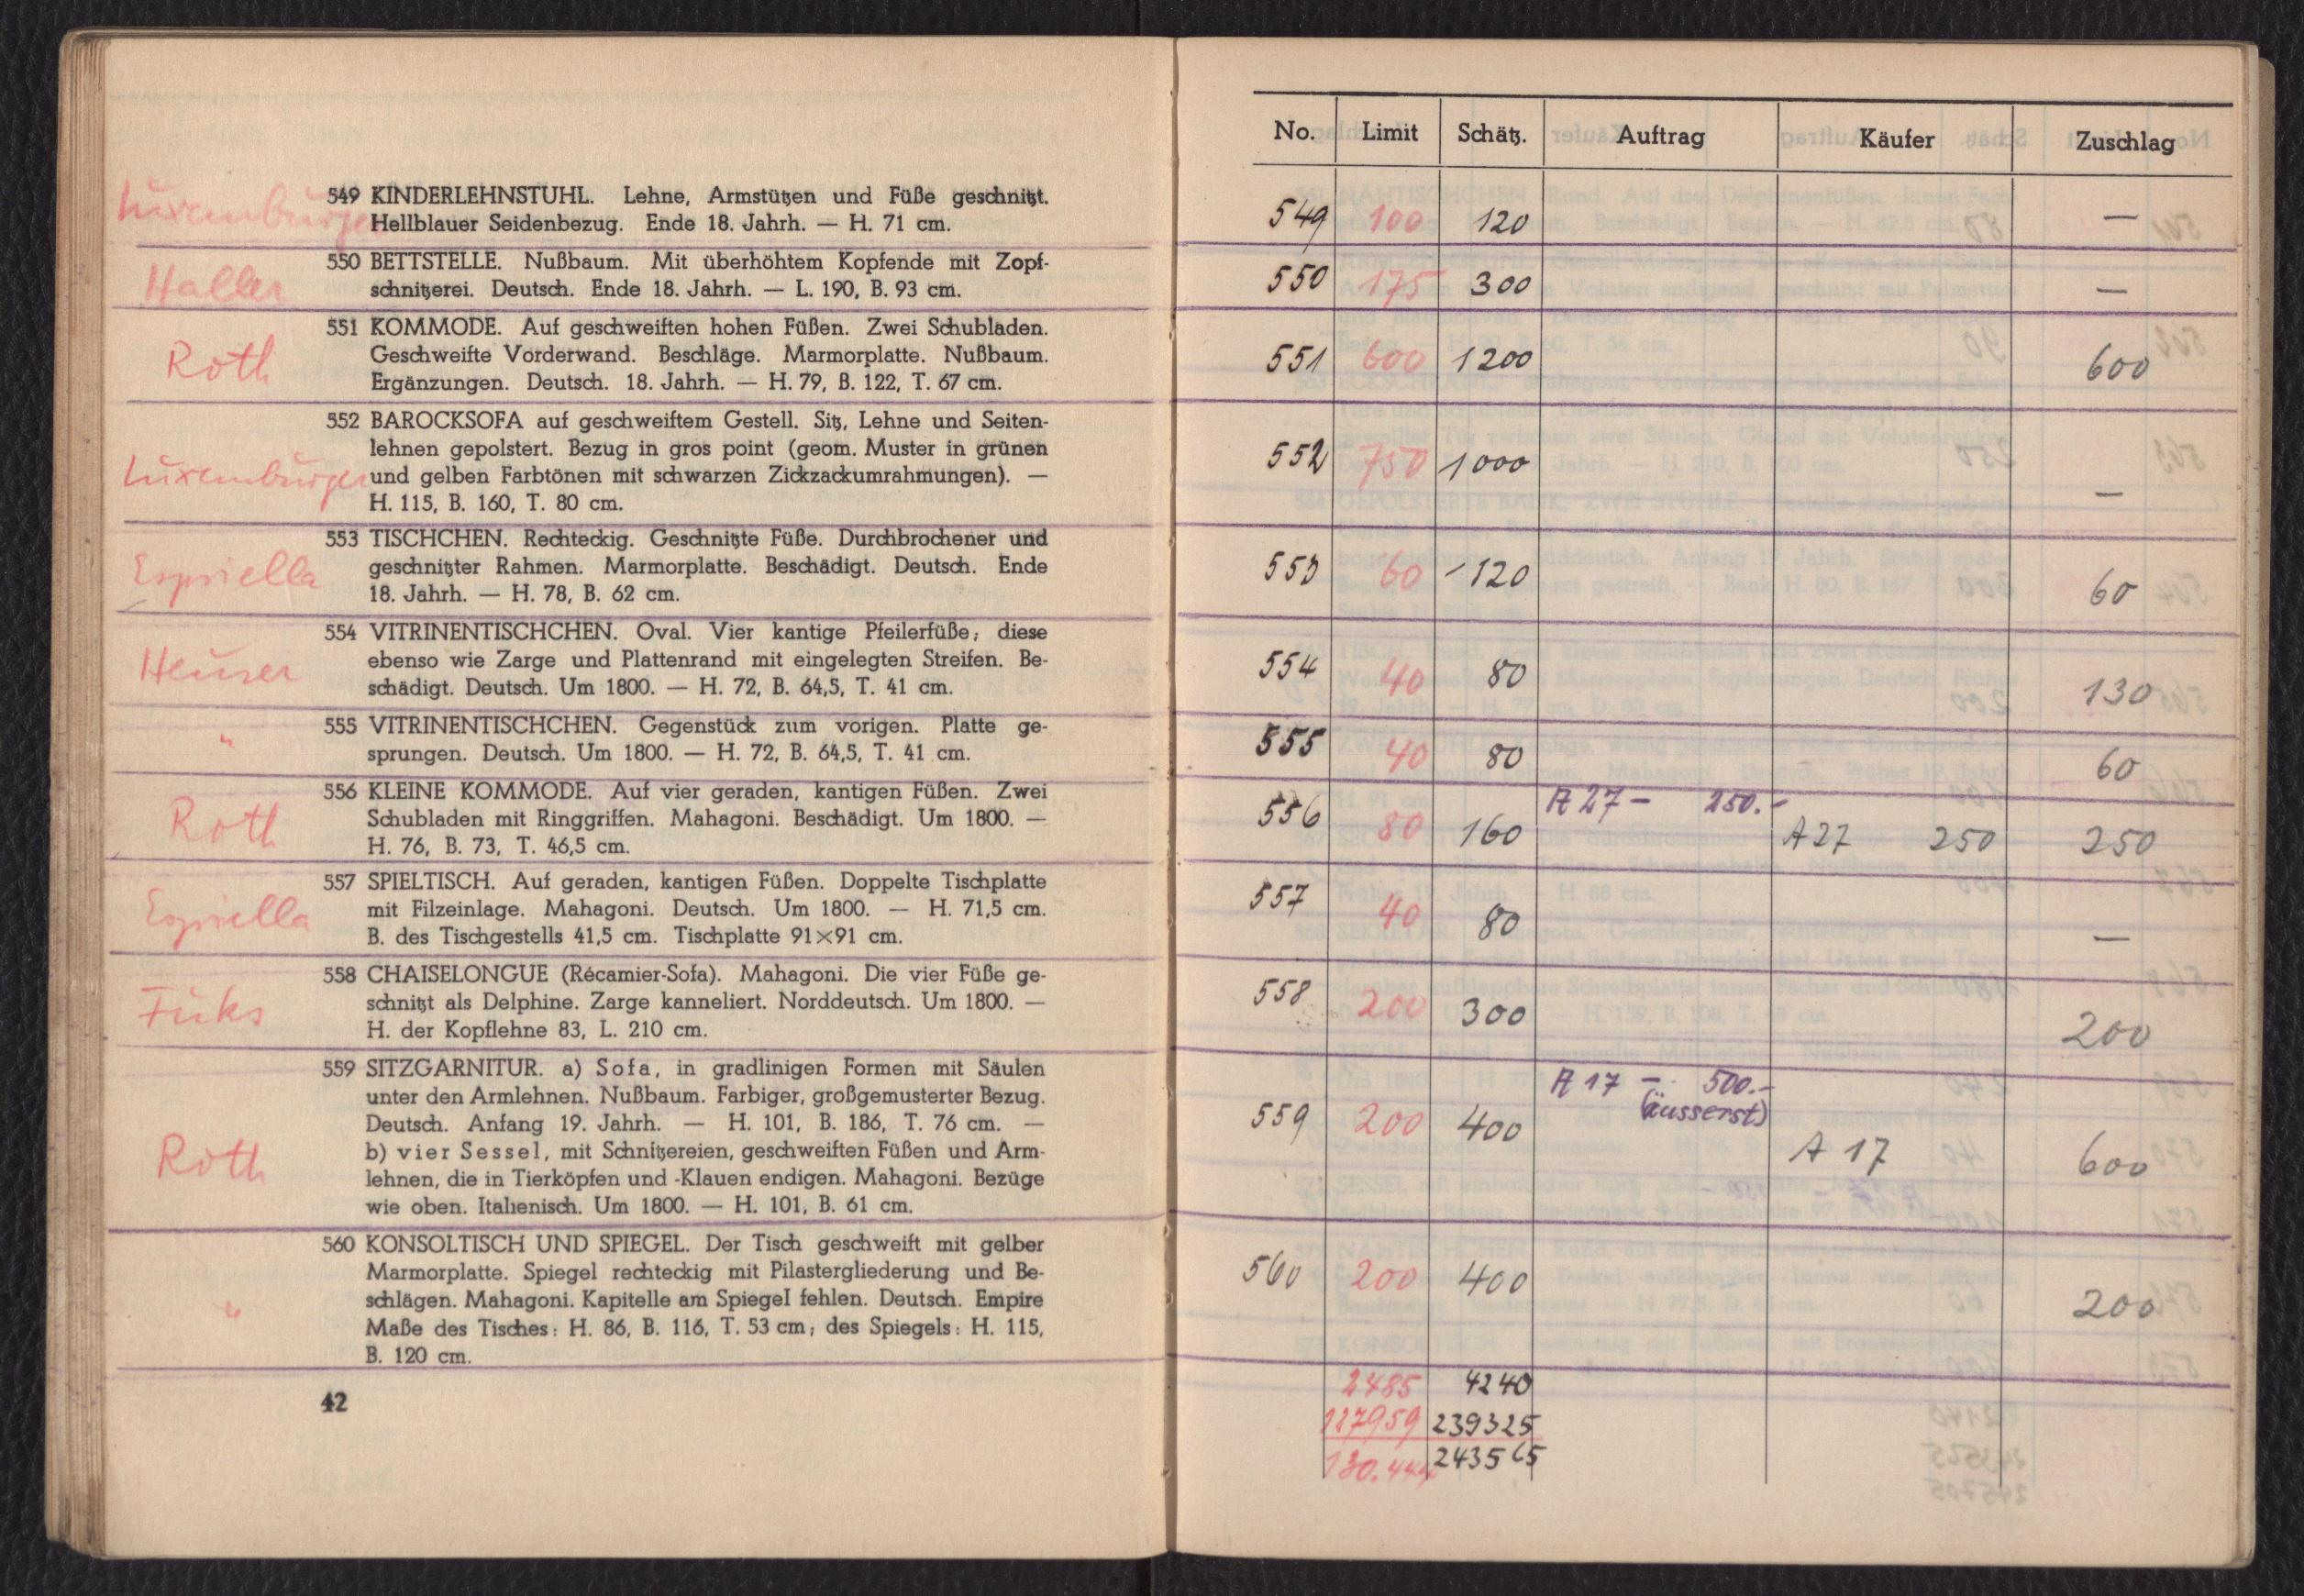 Luxemburger
549 KINDERLEHNSTUHL. Lehne, Armstützen und Füße geschnitzt.
Hellblauer Seidenbezug. Ende 18. Jahrh. — H. 71 cm.
Haller
550 BETTSTELLE. Nußbaum. Mit überhöhtem Kopfende mit Zopf-
schnitzerei. Deutsch. Ende 18. Jahrh. — L. 190, B. 93 cm.
Roth
551 KOMMODE. Auf geschweiften hohen Füßen. Zwei Schubladen.
Geschweifte Vorderwand. Beschläge. Marmorplatte. Nußbaum.
Ergänzungen. Deutsch. 18. Jahrh. — H. 79, B. 122, T. 67 cm.
Luxemburger
552 BAROCKSOFA auf geschweiftem Gestell. Sitz, Lehne und Seiten-
lehnen gepolstert. Bezug in gros point (geom. Muster in grünen
und gelben Farbtönen mit schwarzen Zickzackumrahmungen). —
H. 115, B. 160, T. 80 cm.
Espriella
553 TISCHCHEN. Rechteckig. Geschnitzte Füße. Durchbrochener und
geschnitzter Rahmen. Marmorplatte. Beschädigt. Deutsch. Ende
18. Jahrh. — H. 78, B. 62 cm.
Heuser
554 VITRINENTISCHCHEN. Oval. Vier kantige Pfeilerfüße; diese
ebenso wie Zarge und Plattenrand mit eingelegten Streifen. Be-
schädigt. Deutsch. Um 1800. — H. 72, B. 64,5, T. 41 cm.
"
555 VITRINENTISCHCHEN. Gegenstück zum vorigen. Platte ge-
sprungen. Deutsch. Um 1800. — H. 72, B. 64,5, T. 41 cm.
Roth
556 KLEINE KOMMODE. Auf vier geraden, kantigen Füßen. Zwei
Schubladen mit Ringgriffen. Mahagoni. Beschädigt. Um 1800. —
H. 76, B. 73, T. 46,5 cm.
Espriella
557 SPIELTISCH. Auf geraden, kantigen Füßen. Doppelte Tischplatte
mit Filzeinlage. Mahagoni. Deutsch. Um 1800. — H. 71,5 cm.
B. des Tischgestells 41,5 cm. Tischplatte 91×91 cm.
Fuks
558 CHAISELONGUE (Récamier-Sofa). Mahagoni. Die vier Füße ge-
schnitzt als Delphine. Zarge kanneliert. Norddeutsch. Um 1800. —
H. der Kopflehne 83, L. 210 cm.
Roth
559 SITZGARNITUR. a) Sofa, in gradlinigen Formen mit Säulen
unter den Armlehnen. Nußbaum. Farbiger, großgemusterter Bezug.
Deutsch. Anfang 19. Jahrh. — H. 101, B. 186, T. 76 cm. —
b) vier Sessel, mit Schnitzereien, geschweiften Füßen und Arm-
lehnen, die in Tierköpfen und -Klauen endigen. Mahagoni. Bezüge
wie oben. Italienisch. Um 1800. — H. 101, B. 61 cm.
"
560 KONSOLTISCH UND SPIEGEL. Der Tisch geschweift mit gelber
Marmorplatte. Spiegel rechteckig mit Pilastergliederung und Be-
schlägen. Mahagoni. Kapitelle am Spiegel fehlen. Deutsch. Empire
Maße des Tisches: H. 86, B. 116, T. 53 cm; des Spiegels: H. 115,
B. 120 cm.
42
No. Limit Schätz. Auftrag Käufer Zuschlag
549 100 120 —
550 175 300 —
551 600 1200 600
552 750 1000 —
553 60 120 60
554 40 80 130
555 40 80 60
556 80 160 A 27 — 250.- A 27 250 250
557 40 80 —
558 200 300 200
559 200 400 A 17 — 500.- A 17 600
(äusserst)
560 200 400 200
2485 4240
127959 239325
130.444 243565